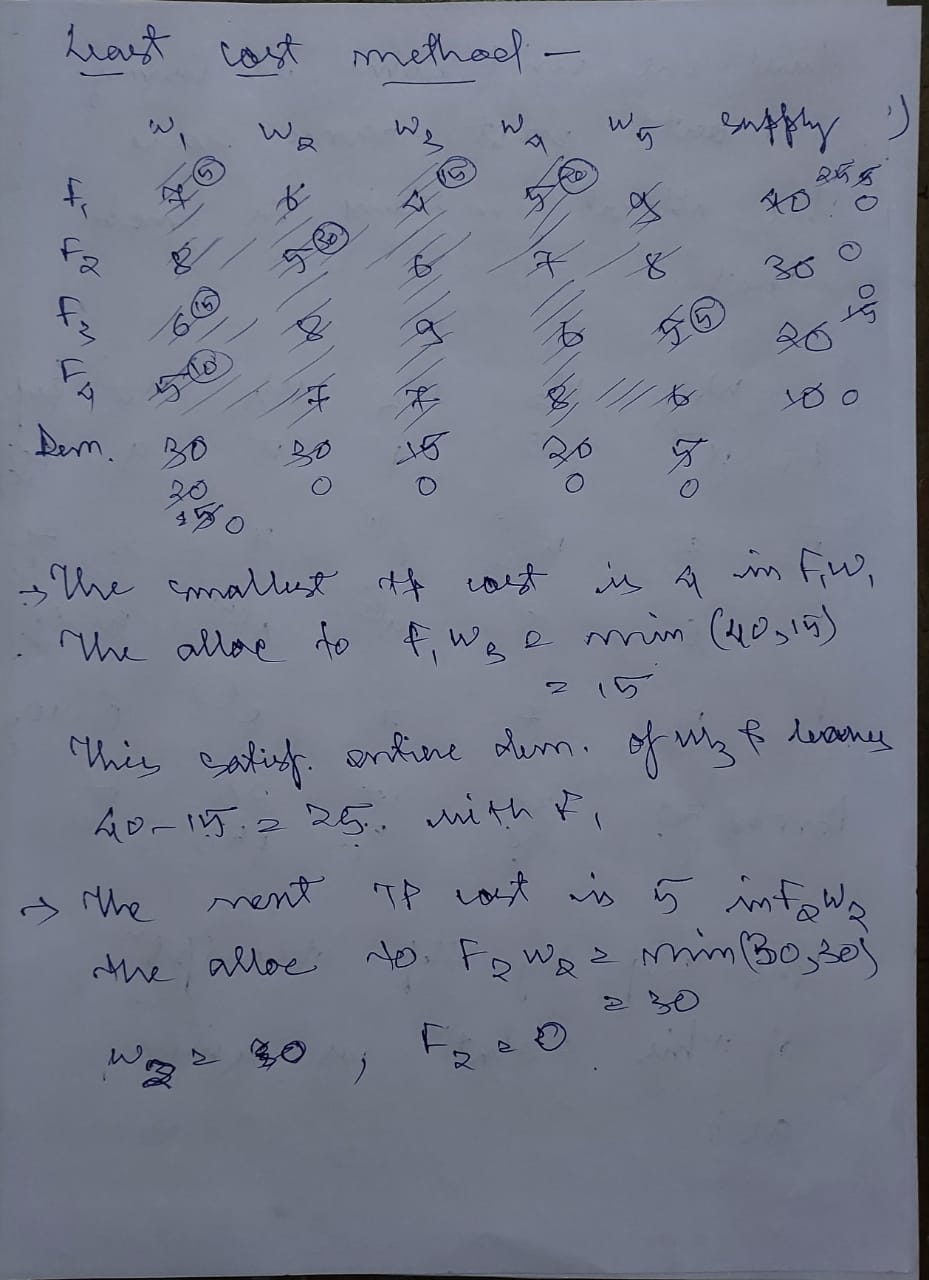 Least cost method –
W1 W2 W3 W4 W5 supply
F1 7 (5) 6 4 (15) 5 (20) 9 40 25 5 0
F2 8 5 (30) 6 7 8 30 0
F3 6 (15) 8 9 6 5 (5) 20 15 0
F4 5 (10) 7 7 8 6 10 0
Dem. 30 30 15 20 5
20 0 0 0 0
15 0
→ The smallest tp cost is 4 in F1W1
The alloc to F1W3 = min (40,15)
= 15
This satisf. entire dem. of W3 & leaves
40-15 = 25. with F1
→ The next TP cost is 5 in F2W2
the alloc to F2W2 = min(30,30)
= 30
W2 = 30 , F2 = 0